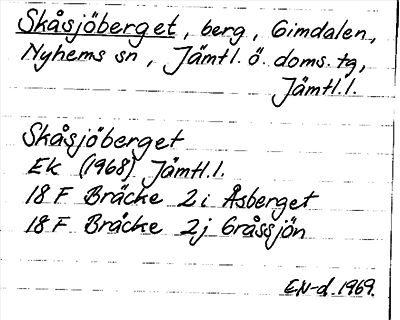 Skåsjöberget, berg, Gimdalen,
Nyhems sn, Jämtl. ö. doms. tg,
Jämtl. l.
Skåsjöberget
Ek (1968) Jämtl. l.
18 F Bräcke 2 i Åsberget
18 F Bräcke 2 j Gråssjön
EN-d. 1969.